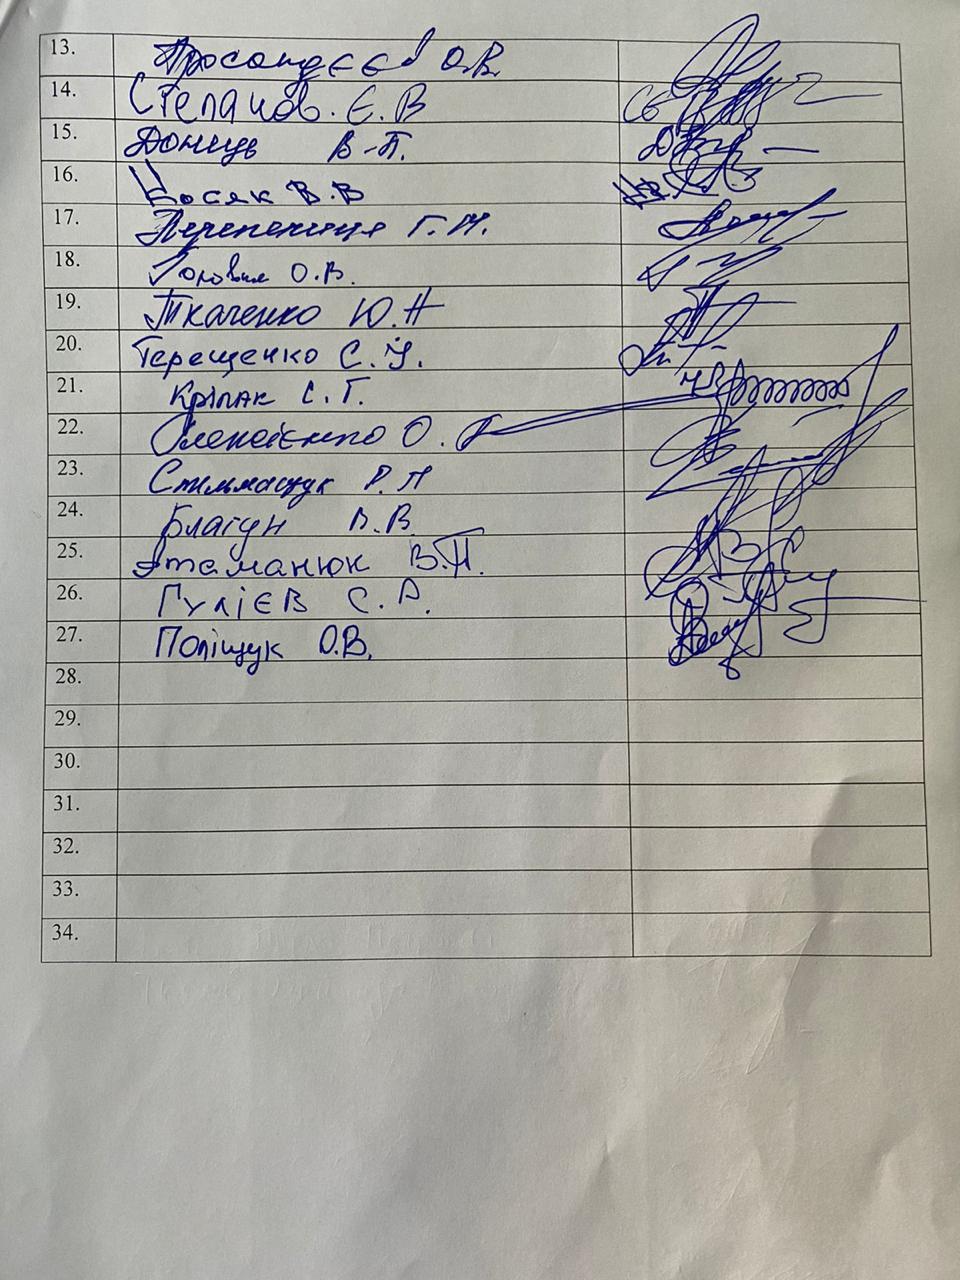 13. Просандєєв О.В.
14. Степанов. Є.В
15. Донець В.П.
16. Носяк В.В
17. Перепелиця Г.М.
18. Головня О.В.
19. Ткаченко Ю.Н
20. Терещенко С.У.
21. Кріпак С.Г.
22. Олексієнко О.
23. Стельмащук Р.П
24. Благун В.В.
25. Атаманюк В.П.
26. Гулієв С.А.
27. Поліщук О.В.
28.
29.
30.
31.
32.
33.
34.